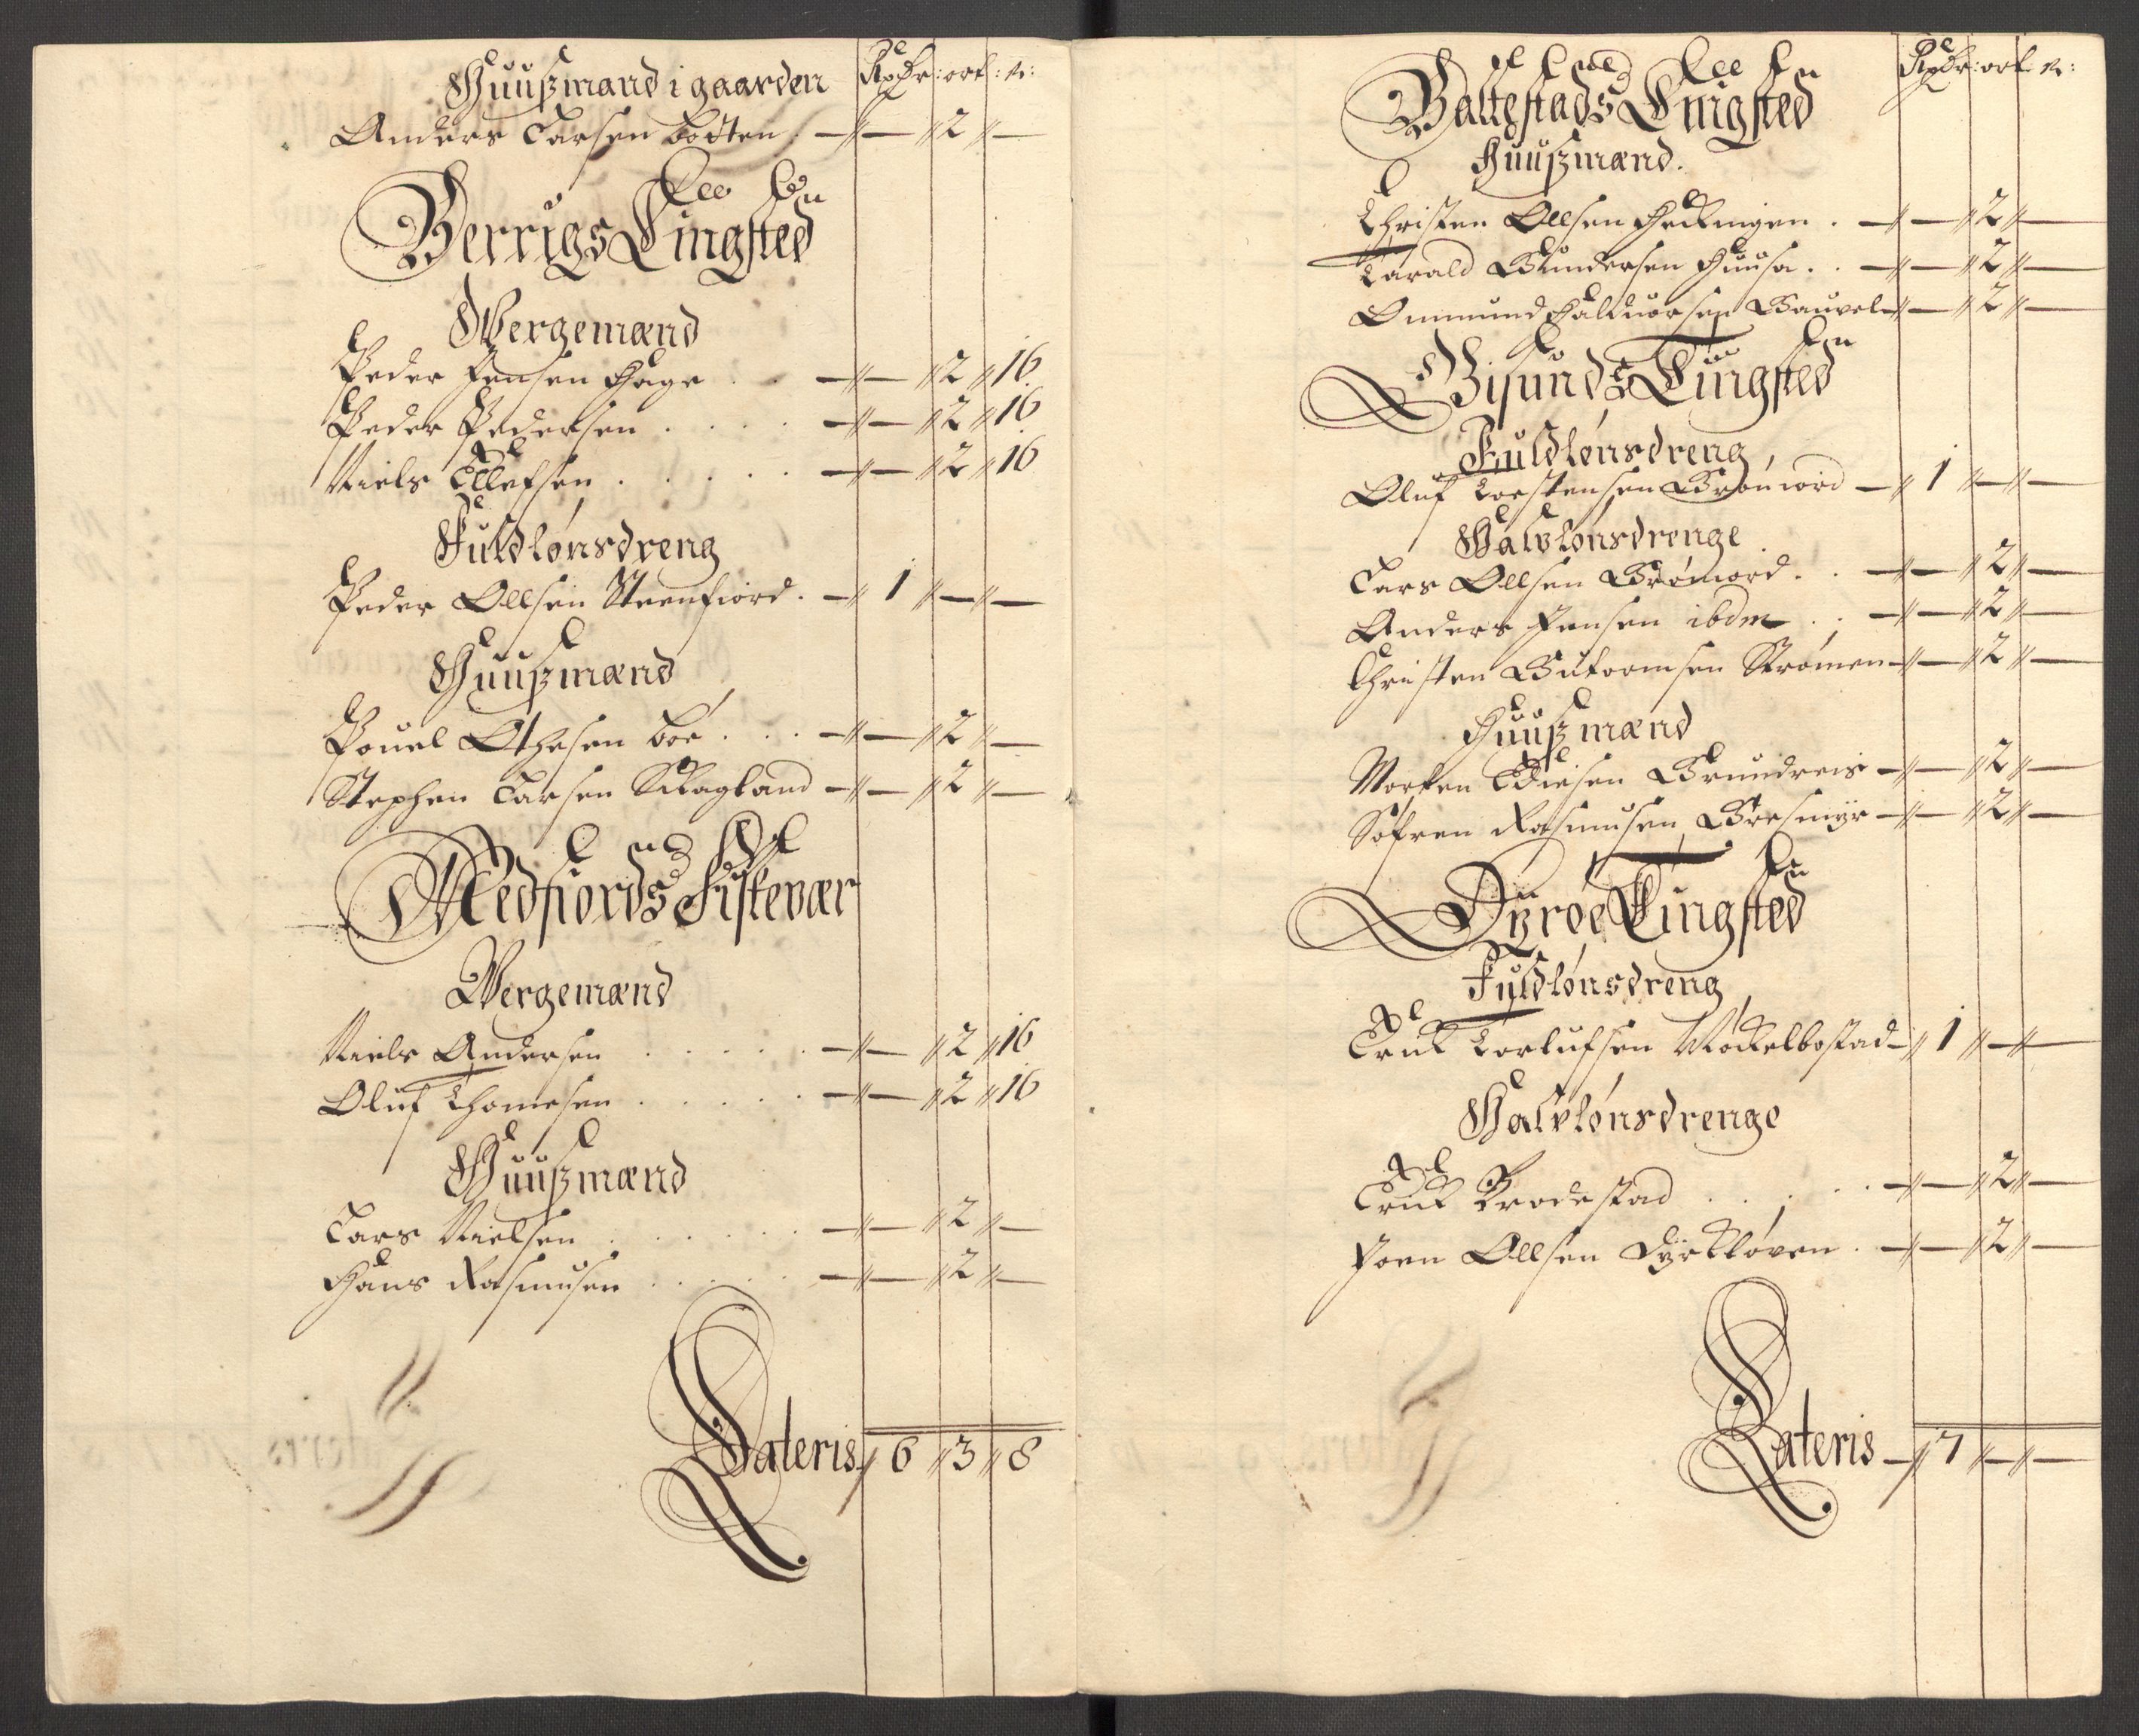 Huuszmand i gaarden Rixdr: ort: s:
Anders Larsen Botten . — 2 —
Berrigs Tingsted
Wergemænd
Peder Jensen Hage . . — 2 16
Peder Pedersen . . . . — 2 16
Niels Ellefsen . . . . — 2 16
Fuldlønsdreng
Peder Ollsen Steenfiord . — 1 — —
Huuszmænd
Pouel Othesen Boe . . . — 2 —
Stephen Larsen Skagland — 2 —
Medfiords Fiskevær
Wergemænd
Niels Andersen . . . . . — 2 16
Oluf Thomesen . . . . . — 2 16
Huuszmænd
Lars Nielsen . . . . . . — 2 —
Hans Rasmusen . . . . . — 2 —
Lateris 6 3 8
Rixdr: ort s:
Baltestads Tingsted
Huuszmænd.
Christen Ollsen Hekingen . — 2 —
Tarald Gundersen Huusa . . — 2 —
Ommund Halduorsen — 2 —
Gisunds Tingsted
Fuldlønsdreng
Oluf Torstensen — 1 — —
Halvlønsdrenge
Lars Ollsen . . — 2 —
Anders Jensen ibdm . . — 2 —
Christen Guttormsen Strømen — 2 —
Huuszmænd
Morten Ediesen Grundreis — 2 —
Søfren Rasmusen Græsmyr — 2 —
Dyrøe Tingsted
Fuldlønsdreng
Erik Torlufsen Møckelbostad — 1 — —
Halvlønsdrenge
Erik Brodestad . . . . . — 2 —
Joen Ollsen Dyrkløven . — 2 —
Lateris — 7 — —